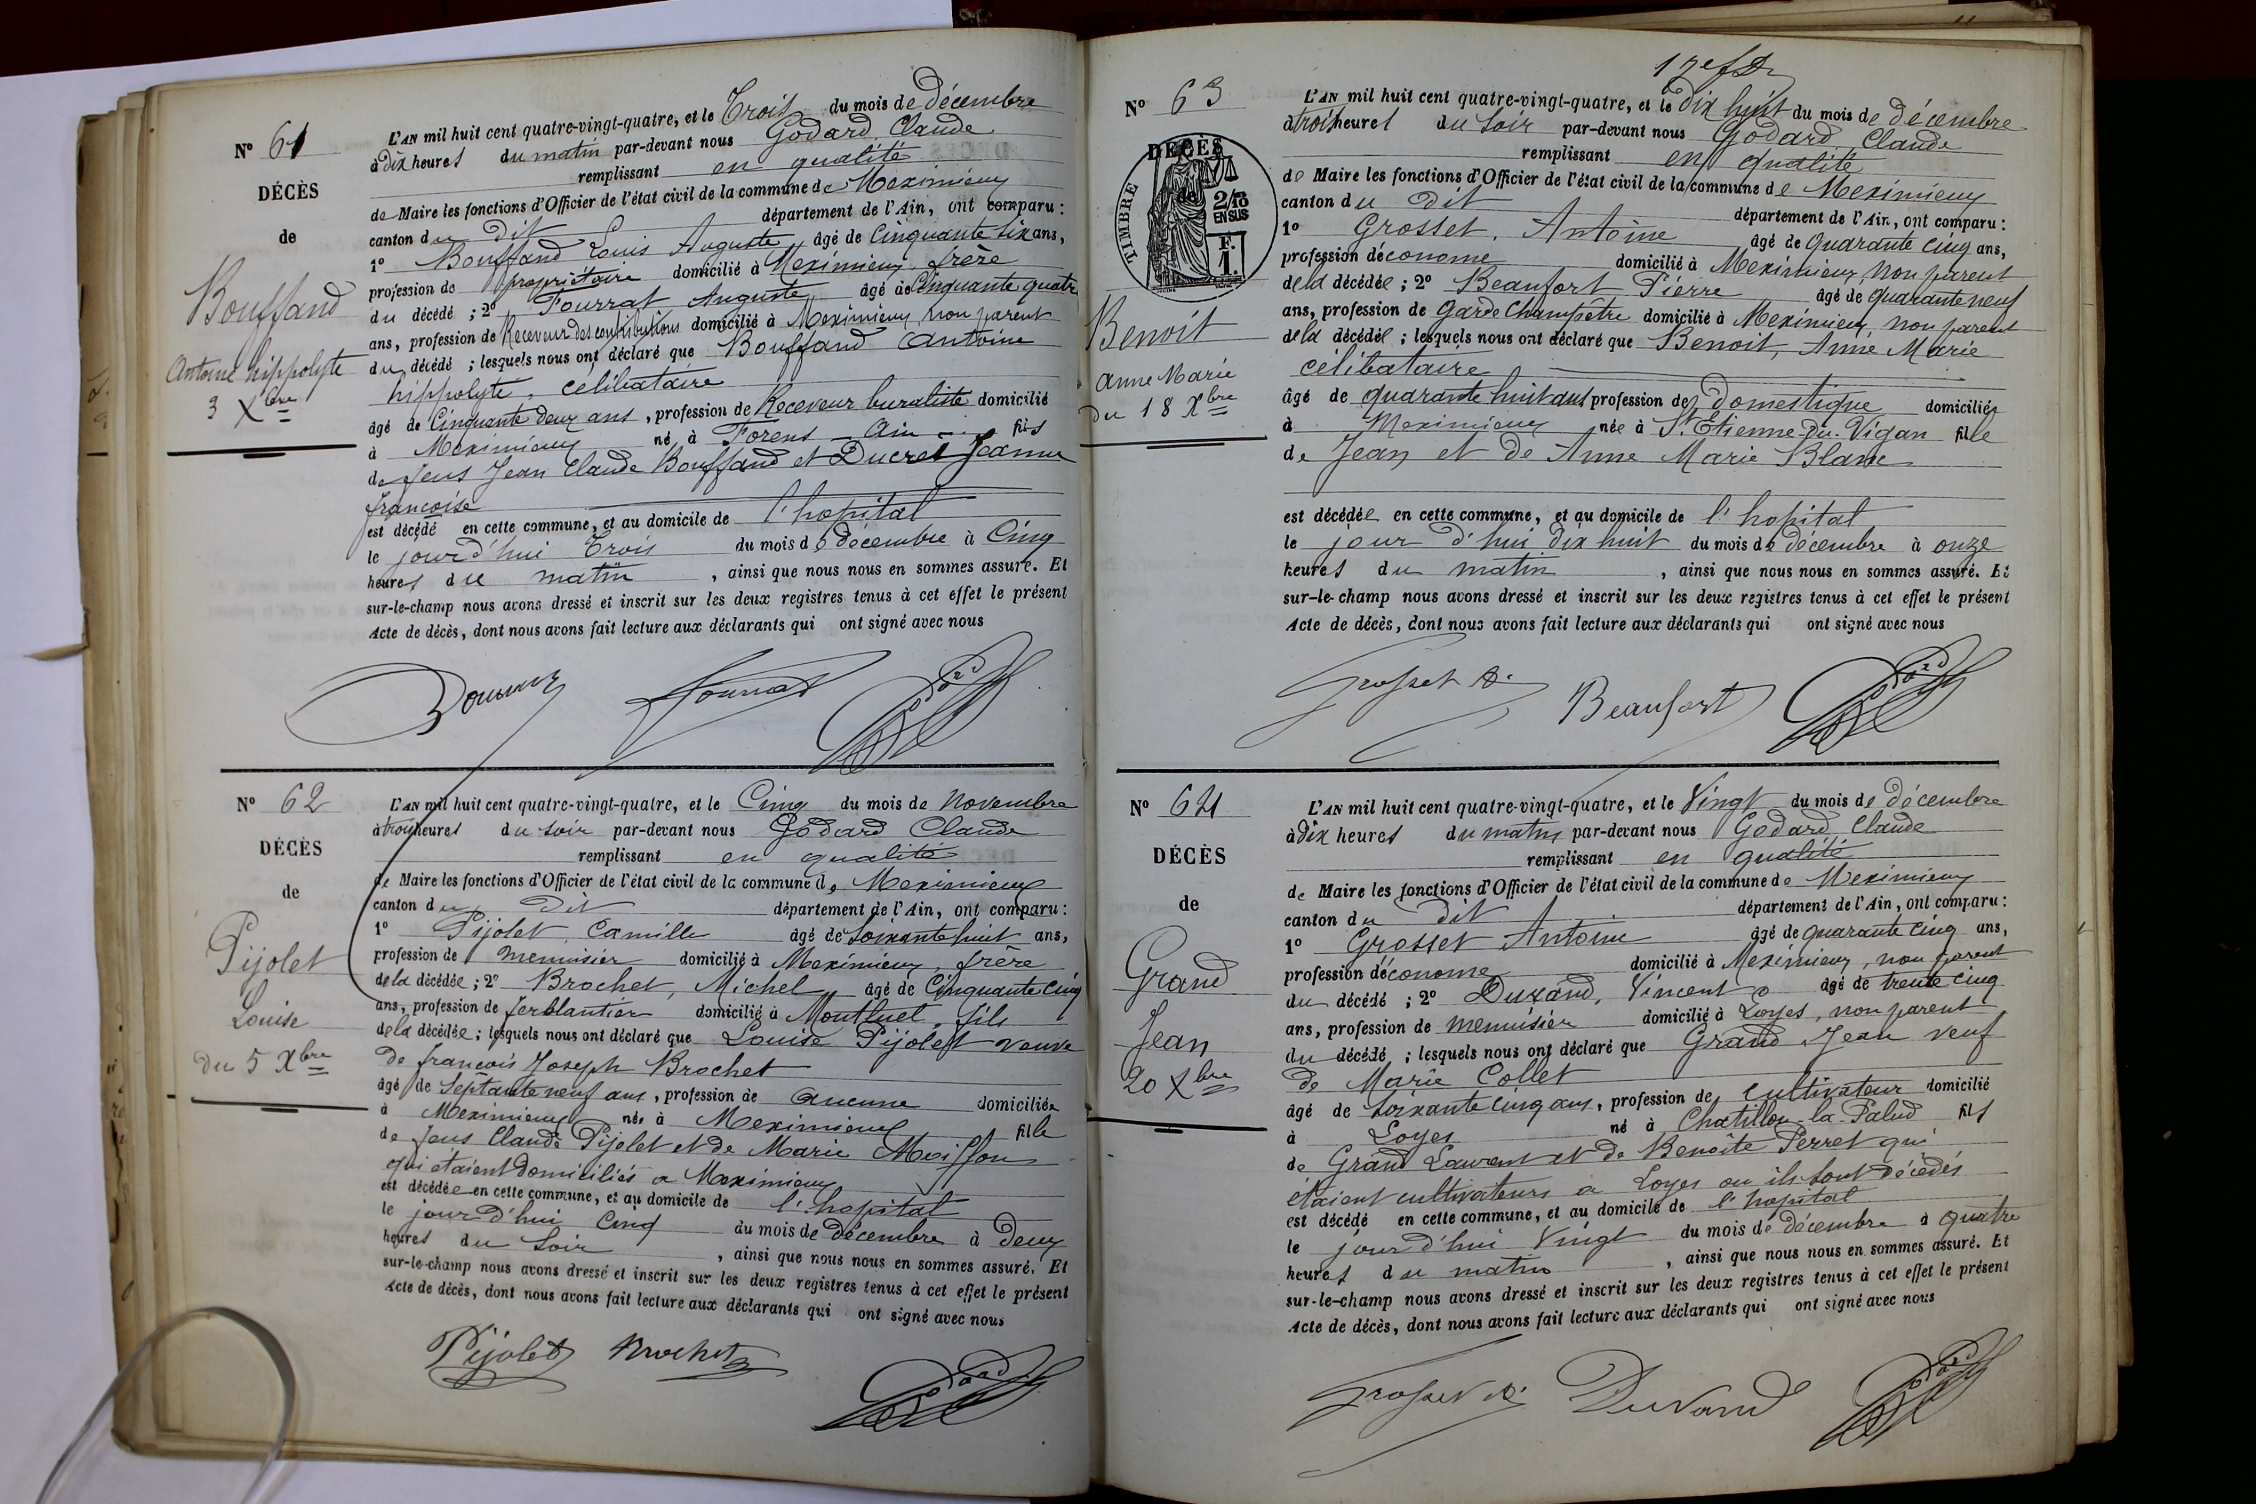 N° 61
DÉCÈS
de
Bouffand
Antoine hippolyte
3 Xbre
L'AN mil huit cent quatre-vingt-quatre, et le Trois du mois de décembre
à Dix heures du matin par-devant nous Godard Claude
remplissant en qualité
de Maire les fonctions d'Officier de l'état civil de la commune de Meximieux
canton du Dit département de l'Ain, ont comparu :
1° Bouffand Louis Auguste âgé de Cinquante six ans,
profession de propriétaire domicilié à Meximieux frère
du décédé ; 2° Fourrat Auguste âgé de Cinquante quatre
ans, profession de Receveur des contributions domicilié à Meximieux non parent
du décédé ; lesquels nous ont déclaré que Bouffand Antoine
hippolyte, célibataire
âgé de Cinquante deux ans, profession de Receveur buraliste domicilié
à Meximieux né à Forens Ain fils
de feus Jean Claude Bouffand et Ducret Jeanne
françoise
est décédé en cette commune, et au domicile de l'hopital
le jourd'hui Trois du mois de décembre à Cinq
heures du matin, ainsi que nous nous en sommes assuré. Et
sur-le-champ nous avons dressé et inscrit sur les deux registres tenus à cet effet le présent
Acte de décès, dont nous avons fait lecture aux déclarants qui ont signé avec nous
Fourrat
N° 62
DÉCÈS
de
Pijolet
Louise
Du 5 Xbre
L'AN mil huit cent quatre-vingt-quatre, et le Cinq du mois de Novembre
à trois heures du soir par-devant nous Godard Claude
remplissant en qualité
de Maire les fonctions d'Officier de l'état civil de la commune de Meximieux
canton du Dit département de l'Ain, ont comparu :
1° Pijolet, Camille âgé de soixante huit ans,
profession de menuisier domicilié à Meximieux, frère
de la décédée ; 2° Brochet, Michel âgé de Cinquante cinq
ans, profession de ferblantier domicilié à Montluel fils
de la décédée ; lesquels nous ont déclaré que Louise Pijolet veuve
de françois Joseph Brochet
âgé de Septante neuf ans, profession de aucune domiciliée
à Meximieux née à Meximieux fille
de feus Claude Pijolet et de Marie Moiffon
qui étaient domiciliés a Meximieux
est décédée en cette commune, et au domicile de l'hopital
le jourd'hui Cinq du mois de décembre à Deux
heures du Soir, ainsi que nous nous en sommes assuré. Et
sur-le-champ nous avons dressé et inscrit sur les deux registres tenus à cet effet le présent
Acte de décès, dont nous avons fait lecture aux déclarants qui ont signé avec nous
Pijolet Brochet
N° 63
DÉCÈS
de
TIMBRE
2/10
EN SUS
F.
1.
Benoit
Anne Marie
Du 18 Xbre
L'AN mil huit cent quatre-vingt-quatre, et le Dix huit du mois de décembre
à trois heures du soir par-devant nous Godard Claude
remplissant en qualité
de Maire les fonctions d'Officier de l'état civil de la commune de Meximieux
canton du Dit département de l'Ain, ont comparu :
1° Grosset, Antoine âgé de quarante cinq ans,
profession d'économe domicilié à Meximieux non parent
de la décédée ; 2° Beaufort Pierre âgé de quarante neuf
ans, profession de Garde Champêtre domicilié à Meximieux non parent
de la décédée ; lesquels nous ont déclaré que Benoit, Anne Marie
célibataire
âgé de quarante huit ans profession de Domestique domiciliée
à Meximieux née à St Etienne-Du-Vigan fille
de Jean et de Anne Marie Blanc
est décédée en cette commune, et au domicile de l'hopital
le jour d'hui dix huit du mois de décembre à onze
heures du matin, ainsi que nous nous en sommes assuré. Et
sur-le-champ nous avons dressé et inscrit sur les deux registres tenus à cet effet le présent
Acte de décès, dont nous avons fait lecture aux déclarants qui ont signé avec nous
Grosset A. Beaufort
N° 64
DÉCÈS
de
Grand
Jean
20 Xbre
L'AN mil huit cent quatre-vingt-quatre, et le Vingt du mois de décembre
à Dix heures du matin par-devant nous Godard Claude
remplissant en qualité
de Maire les fonctions d'Officier de l'état civil de la commune de Meximieux
canton du Dit département de l'Ain, ont comparu :
1° Grosset Antoine âgé de quarante cinq ans,
profession d'économe domicilié à Meximieux, non parent
du décédé ; 2° Durand, Vincent âgé de trente cinq
ans, profession de menuisier domicilié à Loyes, non parent
du décédé ; lesquels nous ont déclaré que Grand Jean veuf
de Marie Collet
âgé de soixante cinq ans, profession de cultivateur domicilié
à Loyes né à Chatillon-la-Palud fils
de Grand Laurent et de Benoîte Perret qui
étaient cultivateurs a Loyes ou ils sont décédés
est décédé en cette commune, et au domicile de l'hopital
le jourd'hui Vingt du mois de décembre à quatre
heures du matin, ainsi que nous nous en sommes assuré. Et
sur-le-champ nous avons dressé et inscrit sur les deux registres tenus à cet effet le présent
Acte de décès, dont nous avons fait lecture aux déclarants qui ont signé avec nous
Grosset A. Durand